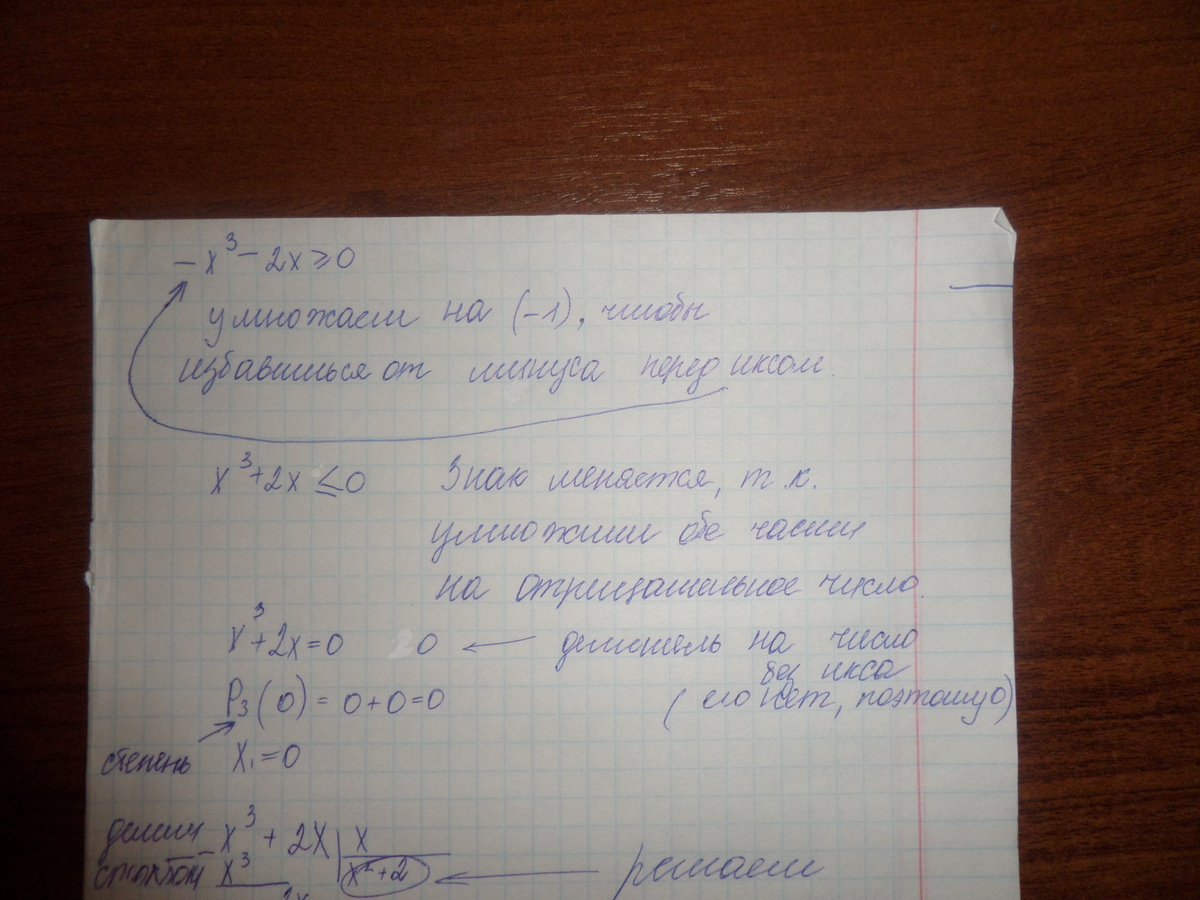 -x³ - 2x ≥ 0
умножаем на (-1), чтобы
избавиться от минуса перед иксом.
x³ + 2x ≤ 0 Знак меняется, т.к.
умножили обе части
на отрицательное число.
x³ + 2x = 0 0 ← делитель на число
без икса
P₃(0) = 0 + 0 = 0 (его нет, поэтому 0)
степень x₁ = 0
делим - x³ + 2x | x
столбом x³ x² + 2 ← решаем
2x